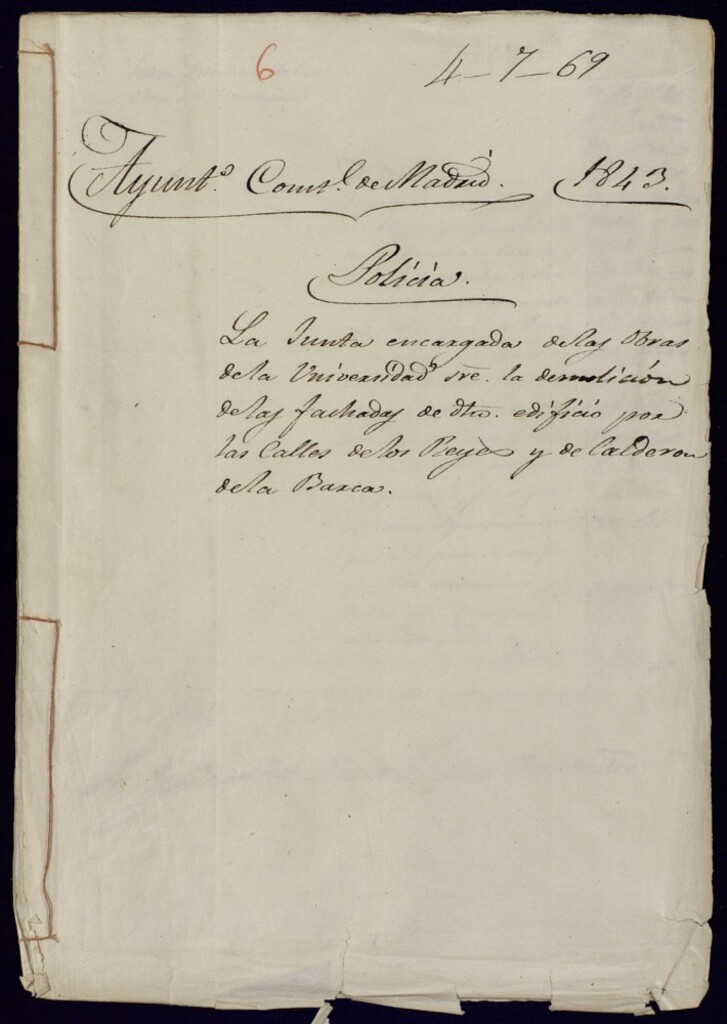 6
4-7-69
Ayunt.º Const.l de Madrid. 1843.
Policia.
La Junta encargada de las Obras
de la Universidad sre. la demolición
de las fachadas de dho. edificio por
las Calles de los Reyes y de Calderon
de la Barca.